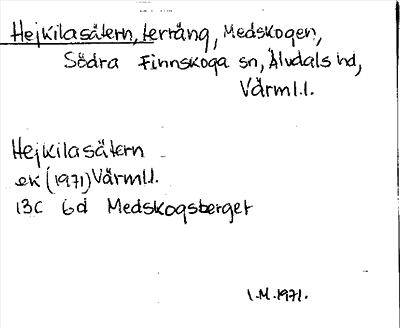 Hejkilasätern, terräng, Medskogen,
Södra Finnskoga sn, Älvdals hd,
Värml.l.
Hejkilasätern
ek (1971) Värml.l.
13C 6d Medskogsberget
I.M. 1971.